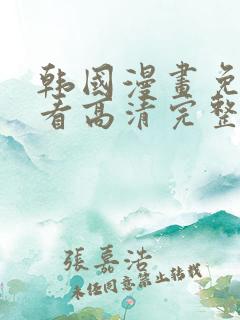 韩國漫畫免
看高清完整
張嘉浩
未经同意禁止转载